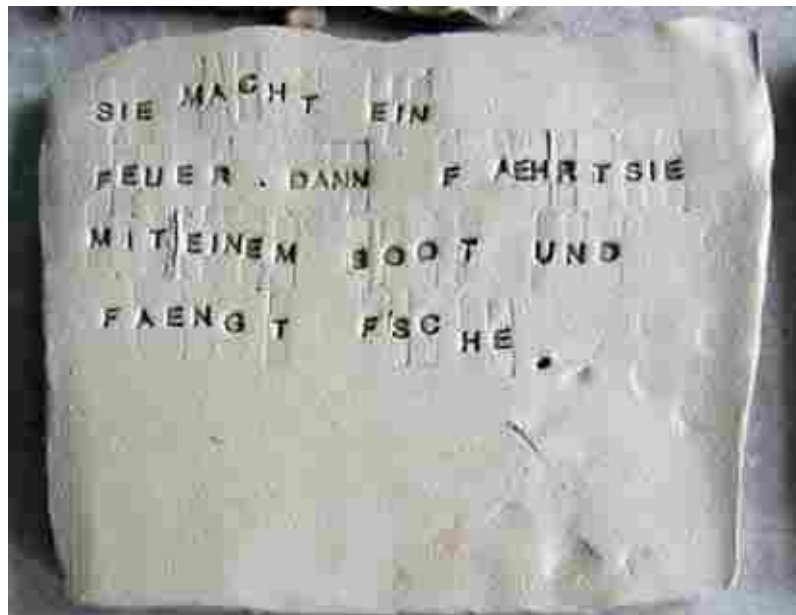 SIE MACHT EIN
FEUER. DANN FAEHRT SIE
MIT EINEM BOOT UND
FAENGT FISCHE.